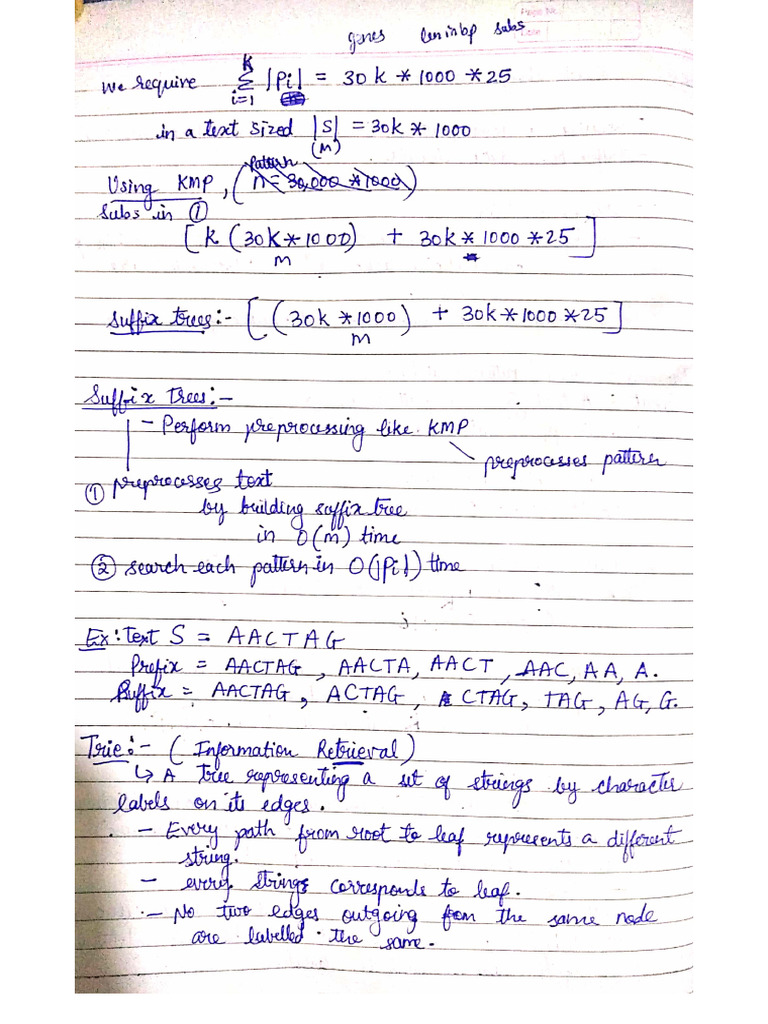 Page No.
Date
genes len in bp subs
We require K Σ i=1 |Pi| = 30k * 1000 * 25
in a text sized |S| = 30k * 1000
(m)
pattern
Using KMP, (n = 30,000 * 1000)
subs in ①
[K (30K * 1000) + 30k * 1000 * 25]
m
Suffix trees:- [(30k * 1000) + 30k * 1000 * 25]
m
Suffix Trees:-
- Perform preprocessing like KMP
preprocesses pattern
① preprocesses text
by building suffix tree
in O(m) time
② search each pattern in O(|Pi|) time
Ex: text S = AACTAG
Prefix = AACTAG, AACTA, AACT, AAC, AA, A.
Suffix = AACTAG, ACTAG, CTAG, TAG, AG, G.
Trie:- (Information Retrieval)
↳ A tree representing a set of strings by character
labels on its edges.
- Every path from root to leaf represents a different
string.
- every strings corresponds to leaf.
- No two edges outgoing from the same node
are labelled the same.